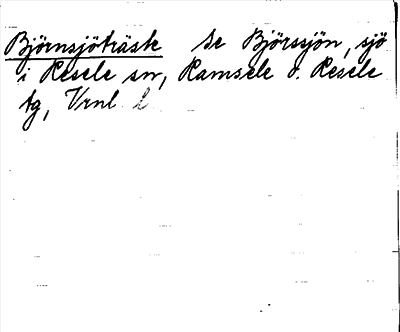 Björnsjöträsk se Björssjön, sjö
i Resele sn, Ramsele o. Resele
tg, Vrnl